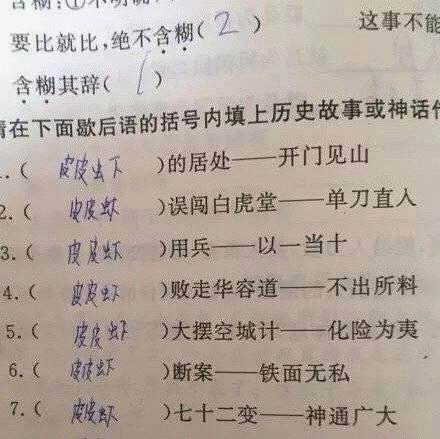 含糊:①不明确
要比就比,绝不含糊( 2 ) 这事不能
含糊其辞( 1 )
请在下面歇后语的括号内填上历史故事或神话
1.( 皮皮虫下 )的居处——开门见山
2.( 皮皮虾 )误闯白虎堂——单刀直入
3.( 皮皮虾 )用兵——以一当十
4.( 皮皮虾 )败走华容道——不出所料
5.( 皮皮虾 )大摆空城计——化险为夷
6.( 皮皮虾 )断案——铁面无私
7.( 皮皮虾 )七十二变——神通广大